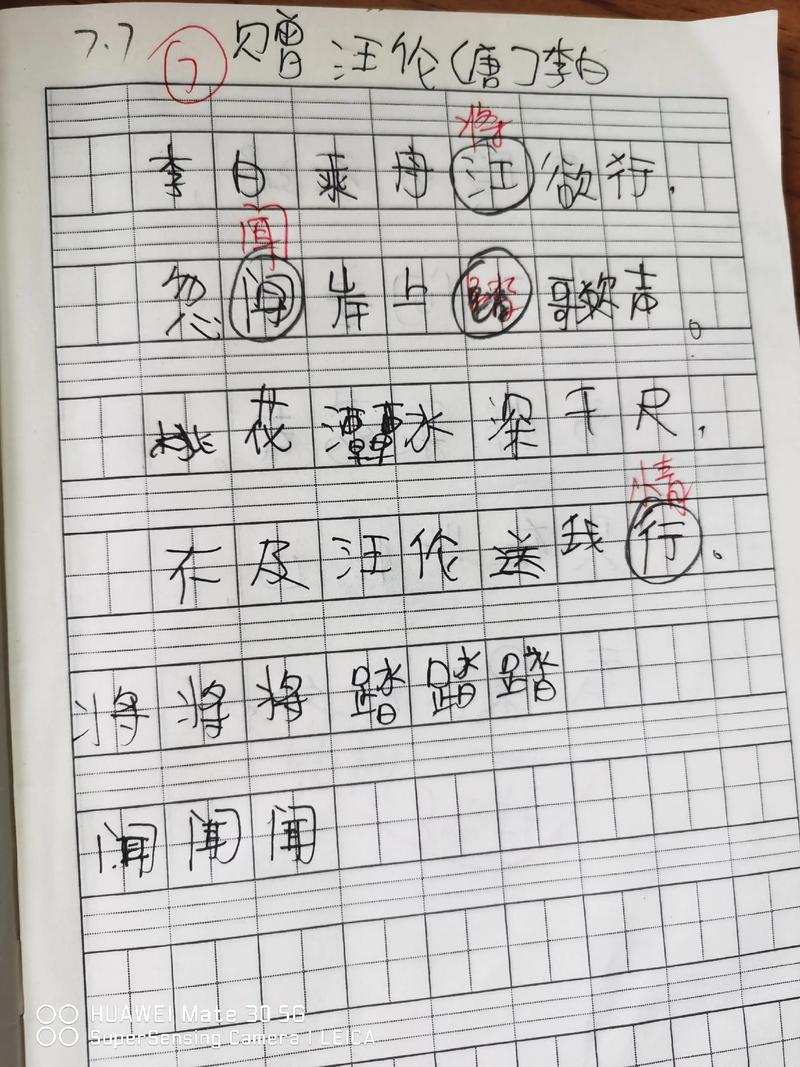 7.7 ⑦ 赠汪伦(唐)李白
将
李白乘舟汪欲行.
闻
忽闻岸上踏歌声。
桃花潭水深千尺,
情
不及汪伦送我行。
将将将踏踏踏
闻闻闻
HUAWEI Mate 30 5G
SuperSensing Camera | LEICA